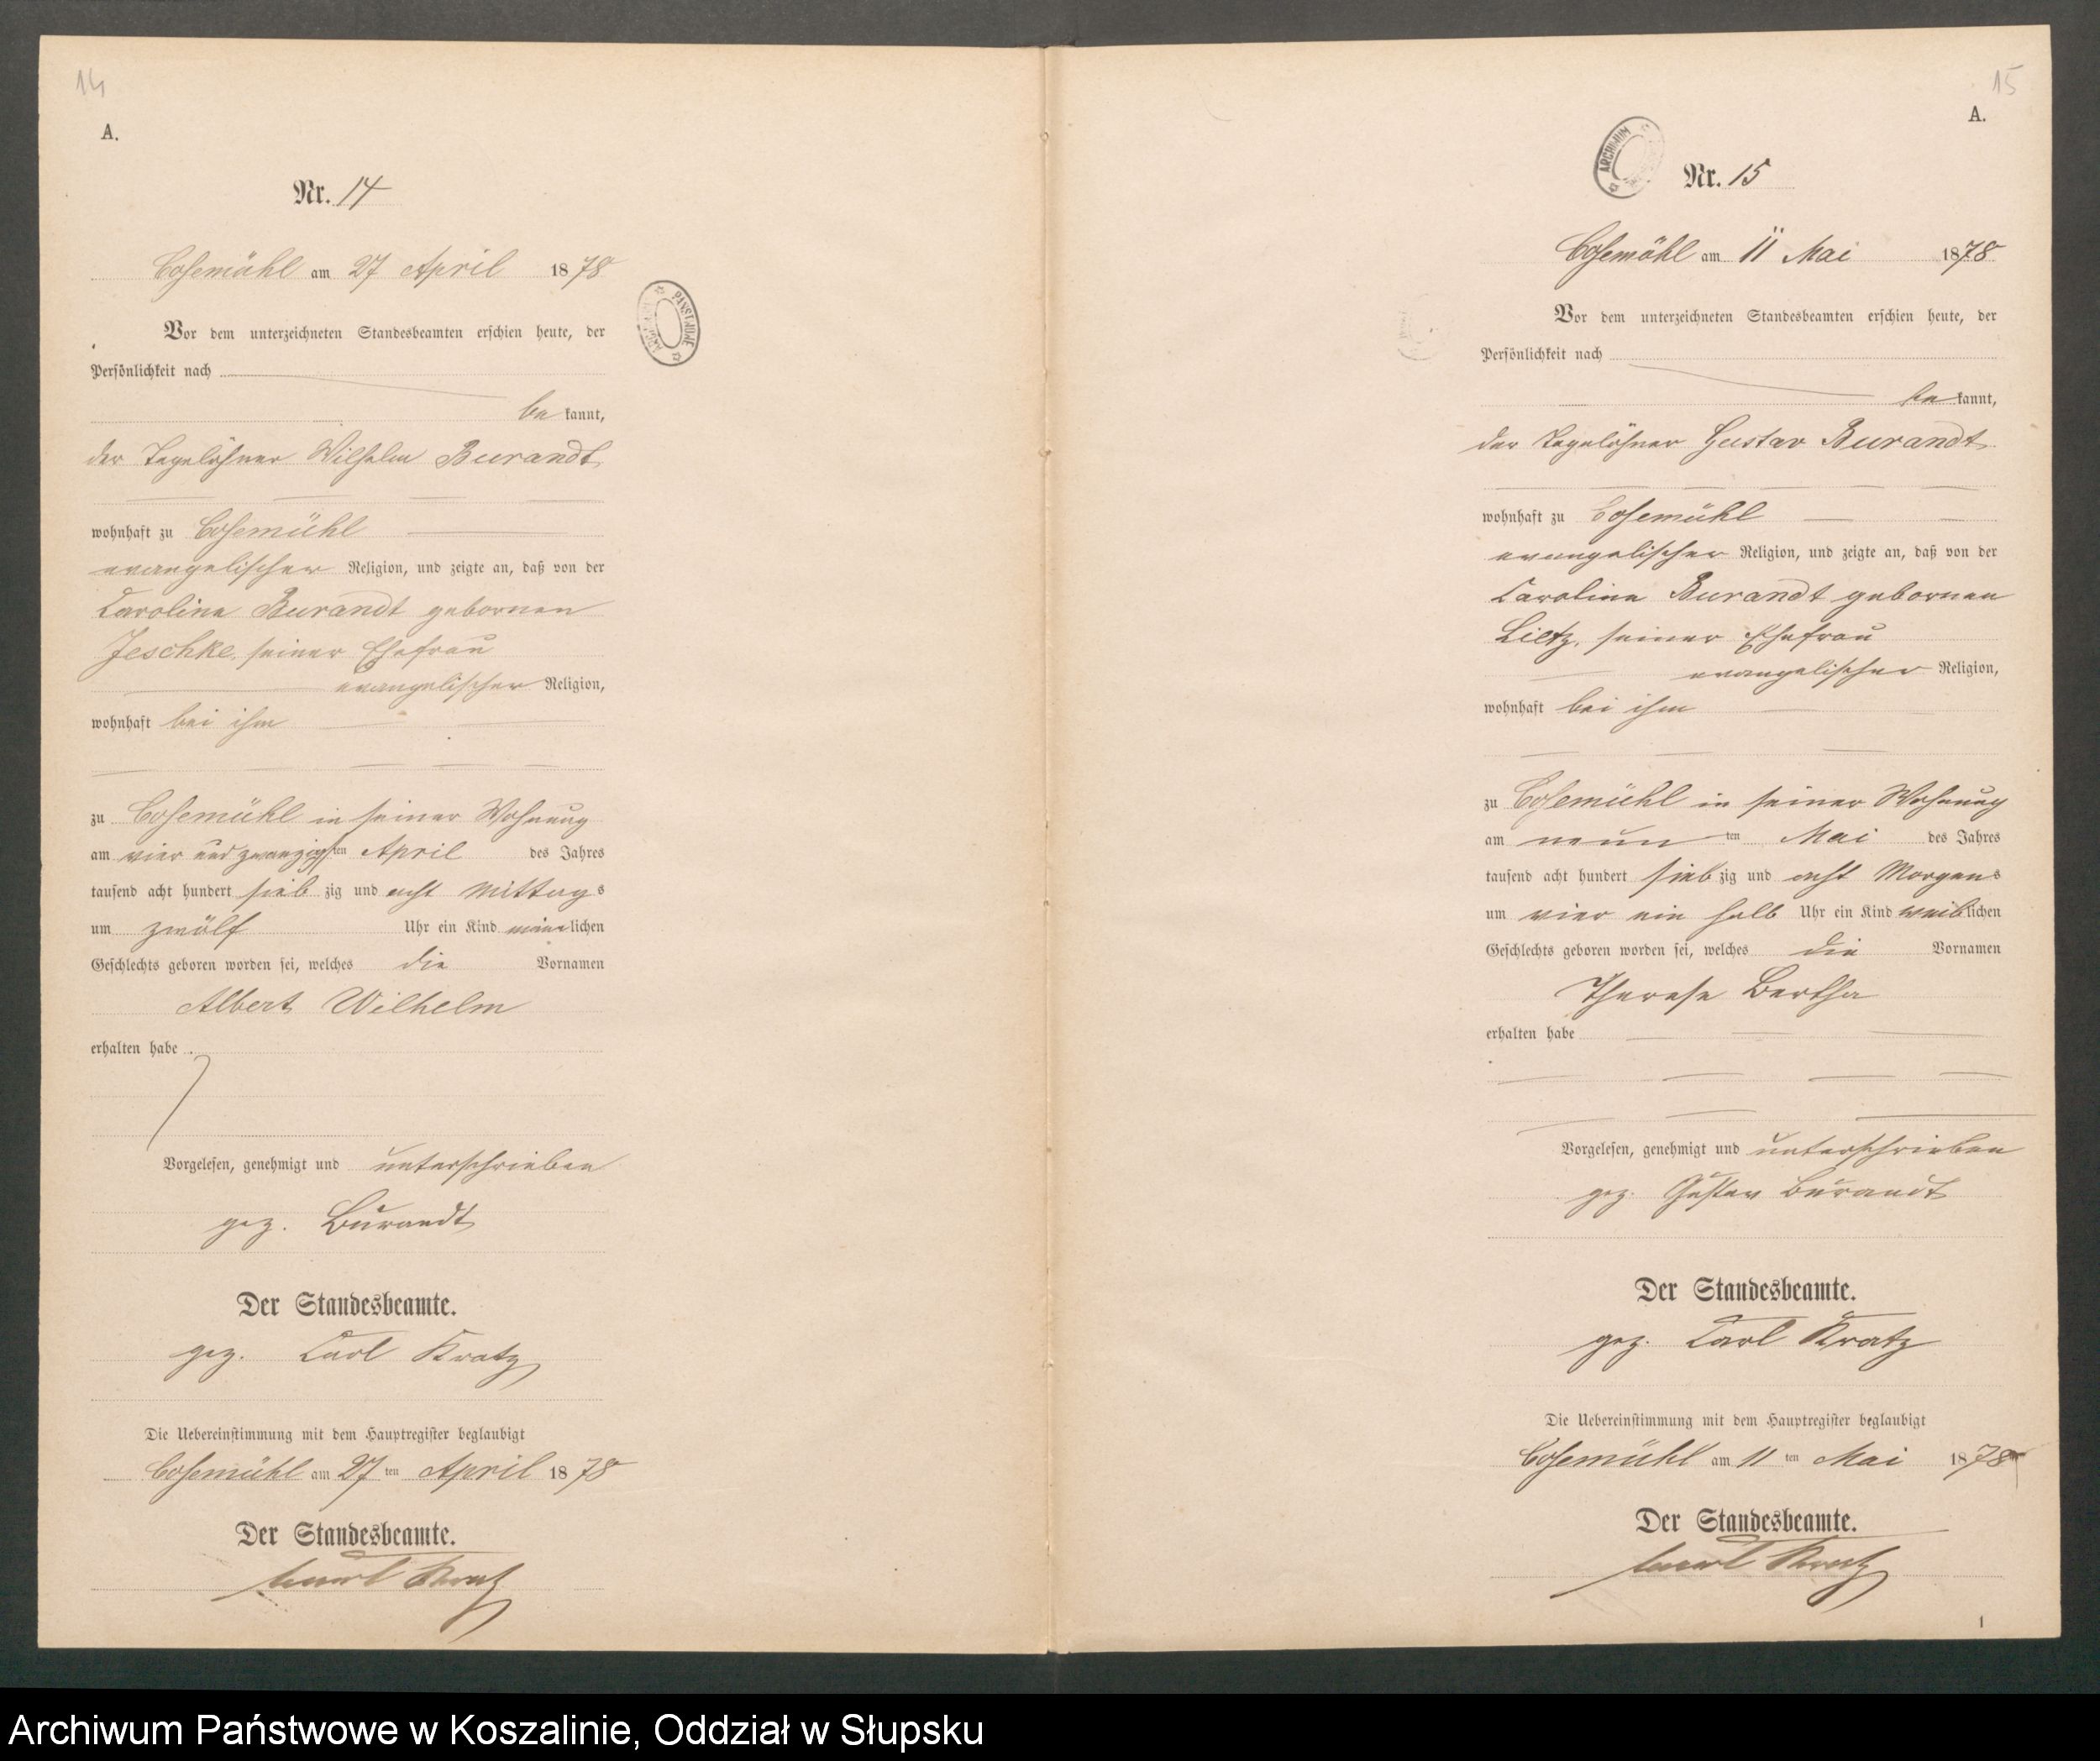 14
A.
Nr. 14
Cosemühl am 27 April 1878
Vor dem unterzeichneten Standesbeamten erschien heute, der
Persönlichkeit nach
be kannt,
der Tagelöhner Wilhelm Burandt
wohnhaft zu Cosemühl
evangelischer Religion, und zeigte an, daß von der
Caroline Burandt gebornen
Jeschke, seiner Ehefrau
evangelischer Religion,
wohnhaft bei ihm
zu Cosemühl in seiner Wohnung
am vier und zwanzigsten April des Jahres
tausend acht hundert sieb zig und acht Mittags
um zwölf Uhr ein Kind männlichen
Geschlechts geboren worden sei, welches die Vornamen
Albert Wilhelm
erhalten habe
Vorgelesen, genehmigt und unterschrieben
gez. Burandt
Der Standesbeamte.
gez. Carl Kratz
Die Uebereinstimmung mit dem Hauptregister beglaubigt
Cosemühl am 27 ten April 1878
Der Standesbeamte.
Carl Kratz
ARCHIWUM PAŃSTWOWE
15
A.
ARCHIWUM
Nr. 15
Cosemühl am 11 Mai 1878
Vor dem unterzeichneten Standesbeamten erschien heute, der
Persönlichkeit nach
be kannt,
der Tagelöhner Gustav Burandt
wohnhaft zu Cosemühl
evangelischer Religion, und zeigte an, daß von der
Caroline Burandt gebornen
Lietz, seiner Ehefrau
evangelischer Religion,
wohnhaft bei ihm
zu Cosemühl in seiner Wohnung
am neun ten Mai des Jahres
tausend acht hundert sieb zig und acht Morgens
um vier ein halb Uhr ein Kind weiblichen
Geschlechts geboren worden sei, welches die Vornamen
Therese Bertha
erhalten habe
Vorgelesen, genehmigt und unterschrieben
gez. Gustav Burandt
Der Standesbeamte.
gez. Carl Kratz
Die Uebereinstimmung mit dem Hauptregister beglaubigt
Cosemühl am 11 ten Mai 1878
Der Standesbeamte.
Carl Kratz
1
Archiwum Państwowe w Koszalinie, Oddział w Słupsku